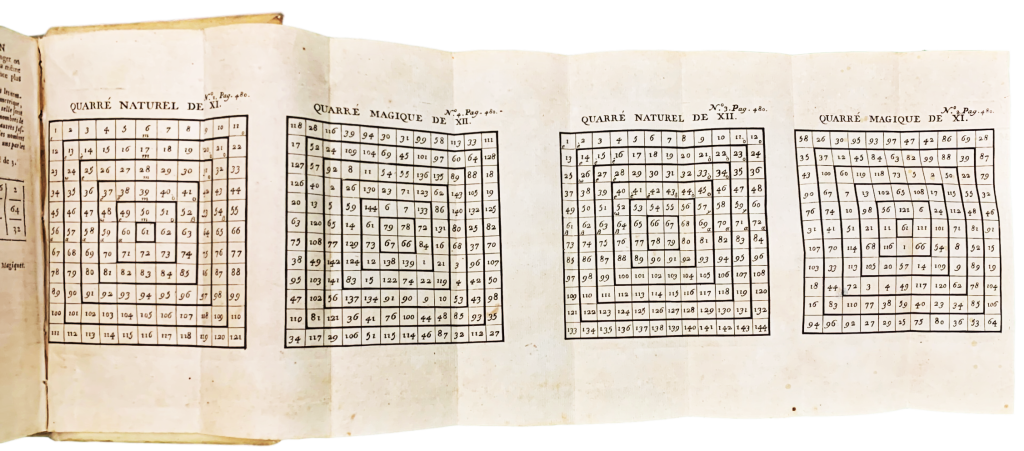 QUARRÉ NATUREL DE XI.
1 2 3 4 5 6 7 8 9 10 11
12 13 14 15 16 17 18 19 20 21 22
23 24 25 26 27 28 29 30 31 32 33
34 35 36 37 38 39 40 41 42 43 44
45 46 47 48 49 50 51 52 53 54 55
56 57 58 59 60 61 62 63 64 65 66
67 68 69 70 71 72 73 74 75 76 77
78 79 80 81 82 83 84 85 86 87 88
89 90 91 92 93 94 95 96 97 98 99
100 101 102 103 104 105 106 107 108 109 110
111 112 113 114 115 116 117 118 119 120 121
QUARRÉ MAGIQUE DE XII.
118 28 116 39 94 30 31 99 58 113 33 111
17 52 24 109 104 69 45 101 97 60 64 128
127 57 92 8 11 54 55 136 135 89 88 18
126 40 2 26 130 23 71 123 62 143 105 19
20 13 5 59 144 6 7 133 86 140 132 125
63 120 65 14 61 79 78 72 131 80 25 82
75 108 77 129 73 67 66 84 16 68 37 70
38 49 142 124 12 138 139 1 21 3 96 107
95 103 141 83 15 122 74 22 119 4 42 50
47 102 56 137 134 91 90 9 10 53 43 98
110 81 121 36 41 76 100 44 48 85 93 35
34 117 29 106 51 115 114 46 87 32 112 27
N.º 3. Pag. 480.
QUARRÉ NATUREL DE XII.
1 2 3 4 5 6 7 8 9 10 11 12
13 14 15 16 17 18 19 20 21 22 23 24
25 26 27 28 29 30 31 32 33 34 35 36
37 38 39 40 41 42 43 44 45 46 47 48
49 50 51 52 53 54 55 56 57 58 59 60
61 62 63 64 65 66 67 68 69 70 71 72
73 74 75 76 77 78 79 80 81 82 83 84
85 86 87 88 89 90 91 92 93 94 95 96
97 98 99 100 101 102 103 104 105 106 107 108
109 110 111 112 113 114 115 116 117 118 119 120
121 122 123 124 125 126 127 128 129 130 131 132
133 134 135 136 137 138 139 140 141 142 143 144
QUARRÉ MAGIQUE DE XI.
58 26 30 95 93 97 47 42 86 69 28
35 37 12 45 84 63 82 99 88 39 87
43 100 60 119 118 73 5 2 50 22 79
90 67 7 13 102 65 108 17 115 55 32
76 74 10 98 56 121 6 24 112 48 46
31 41 51 21 11 61 111 101 71 81 91
107 70 114 68 116 1 66 54 8 52 15
103 33 113 105 20 57 14 109 9 89 19
18 44 72 3 4 49 117 120 62 78 104
16 83 110 77 38 59 40 23 34 85 106
94 96 92 27 29 25 75 80 36 53 64